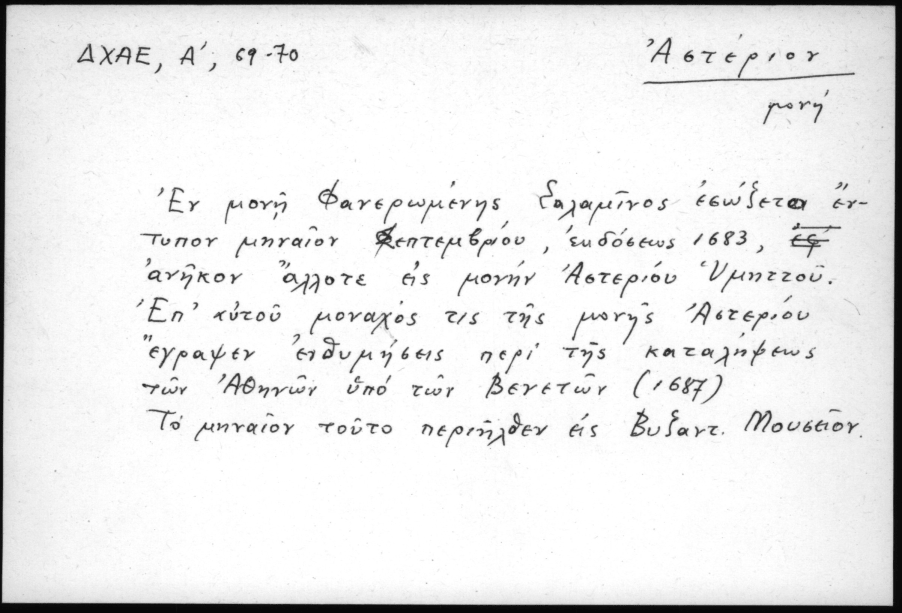 ΔΧΑΕ, Α', 69-70
Ἀστέριον
μονή
Ἐν μονῇ Φανερωμένης Σαλαμῖνος ἐσώζετο ἔν-
τυπον μηναῖον Σεπτεμβρίου, ἐκδόσεως 1683,
ἀνῆκον ἄλλοτε εἰς μονήν Ἀστερίου Ὑμηττοῦ.
Ἐπ' αὐτοῦ μοναχός τις τῆς μονῆς Ἀστερίου
ἔγραψεν ἐνθυμήσεις περί τῆς καταλήψεως
τῶν Ἀθηνῶν ὑπό τῶν Βενετῶν (1687)
Τό μηναῖον τοῦτο περιῆλθεν εἰς Βυζαντ. Μουσεῖον.